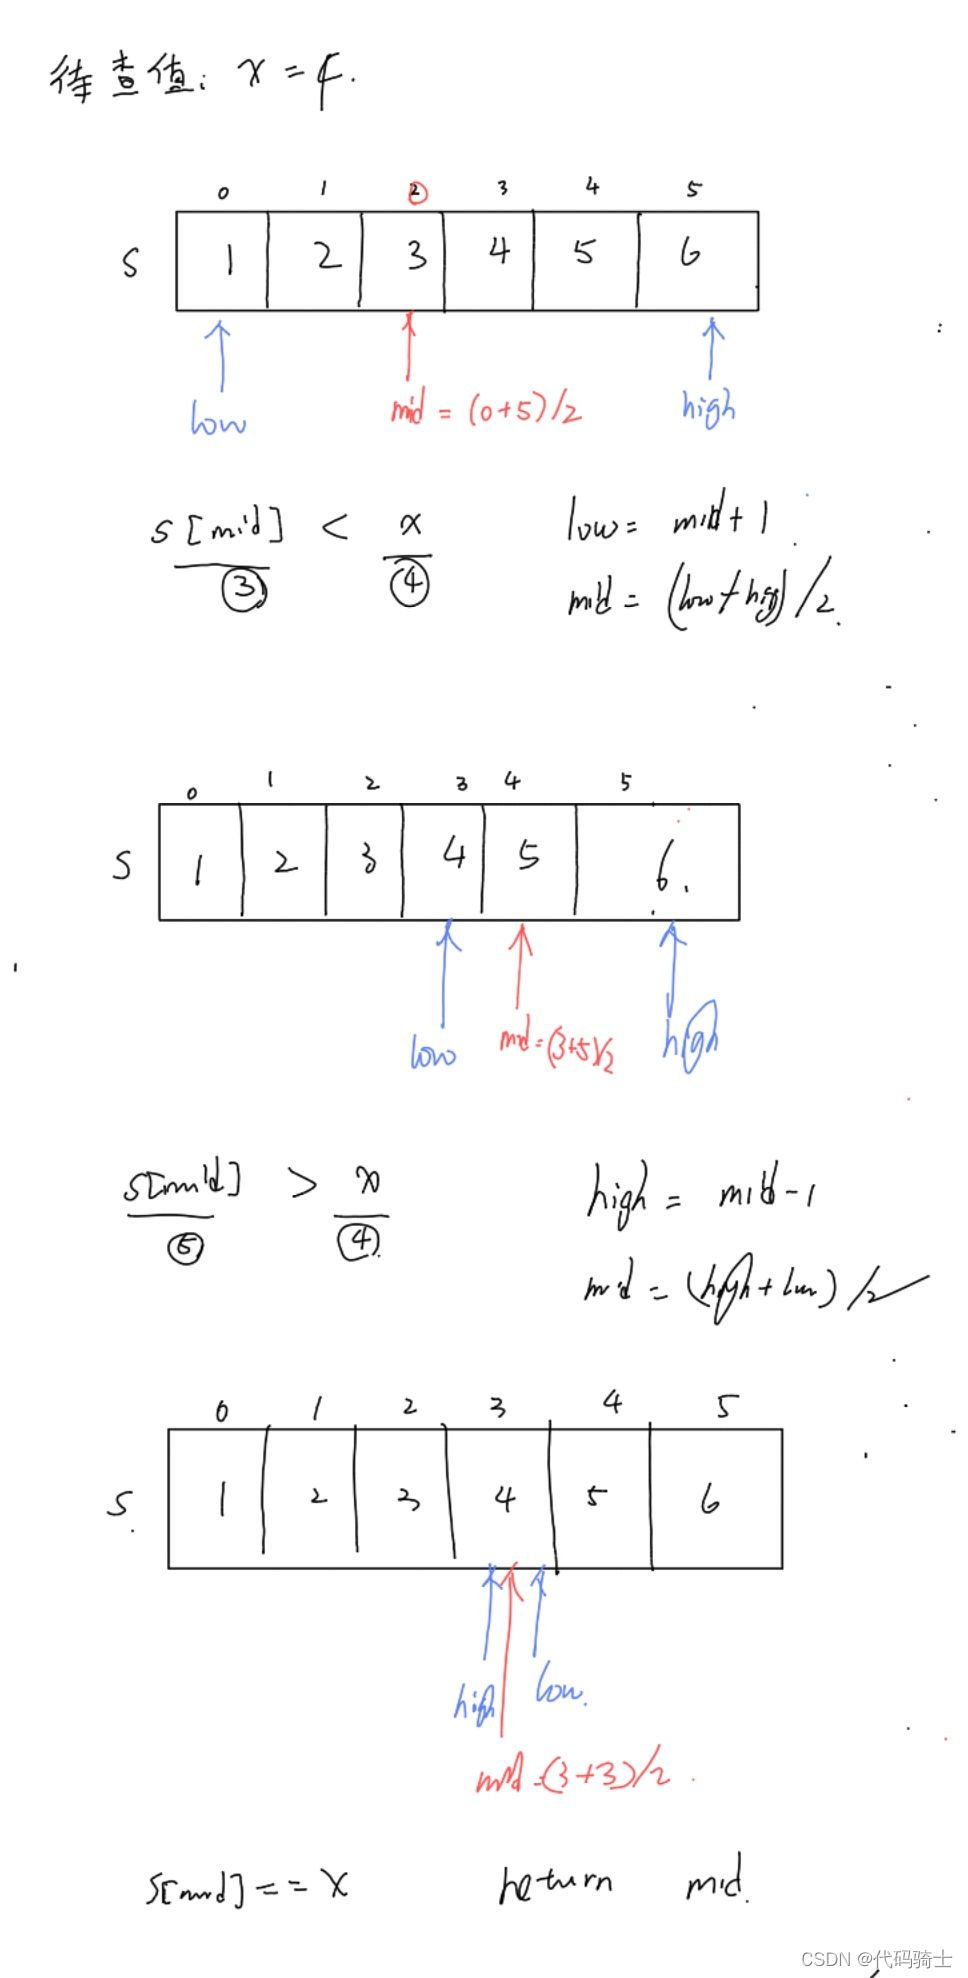 待查值: x = 4.
0 1 2 3 4 5
S 1 2 3 4 5 6
low mid = (0+5)/2 high
S[mid] < x low = mid + 1
3 4 mid = (low + high)/2.
0 1 2 3 4 5
S 1 2 3 4 5 6.
low mid = (3+5)/2 high
S[mid] > x high = mid - 1
5 4. mid = (high + low)/2
0 1 2 3 4 5
S. 1 2 3 4 5 6
high low.
mid = (3+3)/2.
S[mid] == x return mid.
CSDN @代码骑士